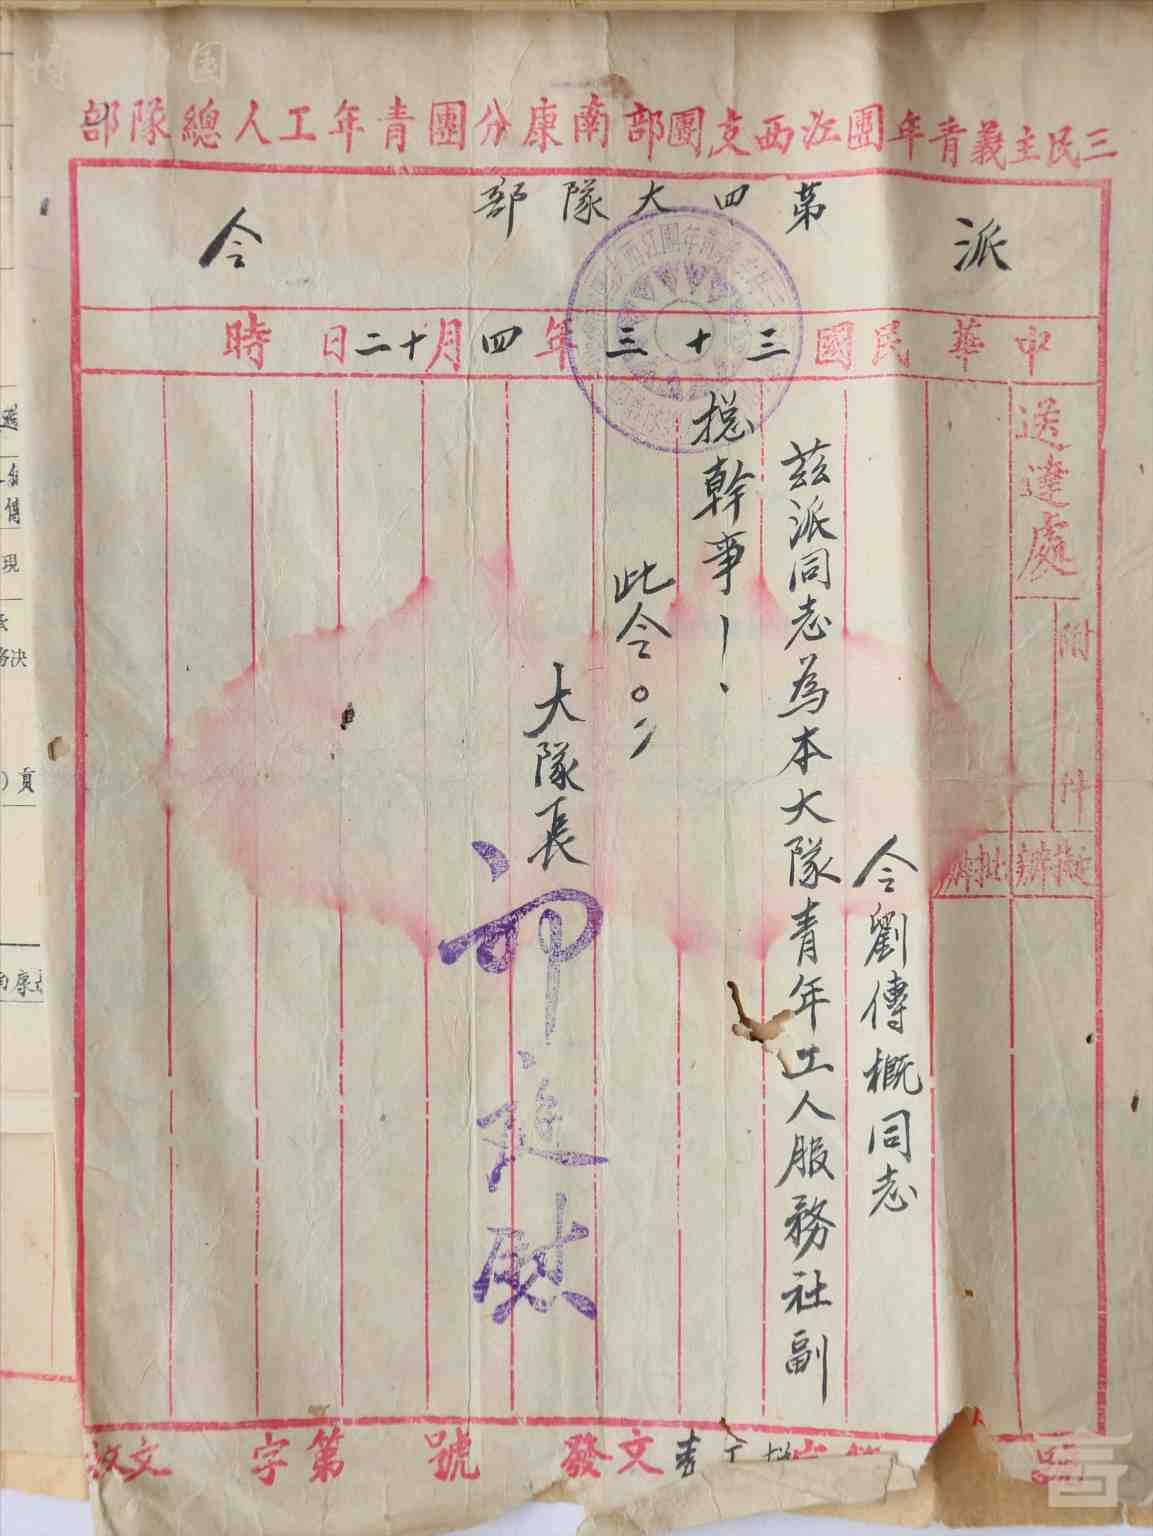 三民主義青年團江西支團部南康分團青年工人總隊部
派
第四大隊部
令
中華民國三十三年四月十二日 時
送達處
附 件
擬辦
批辦
令劉傳概同志
茲派同志為本大隊青年工人服務社副
總幹事
此令。
大隊長
發文
字第 號